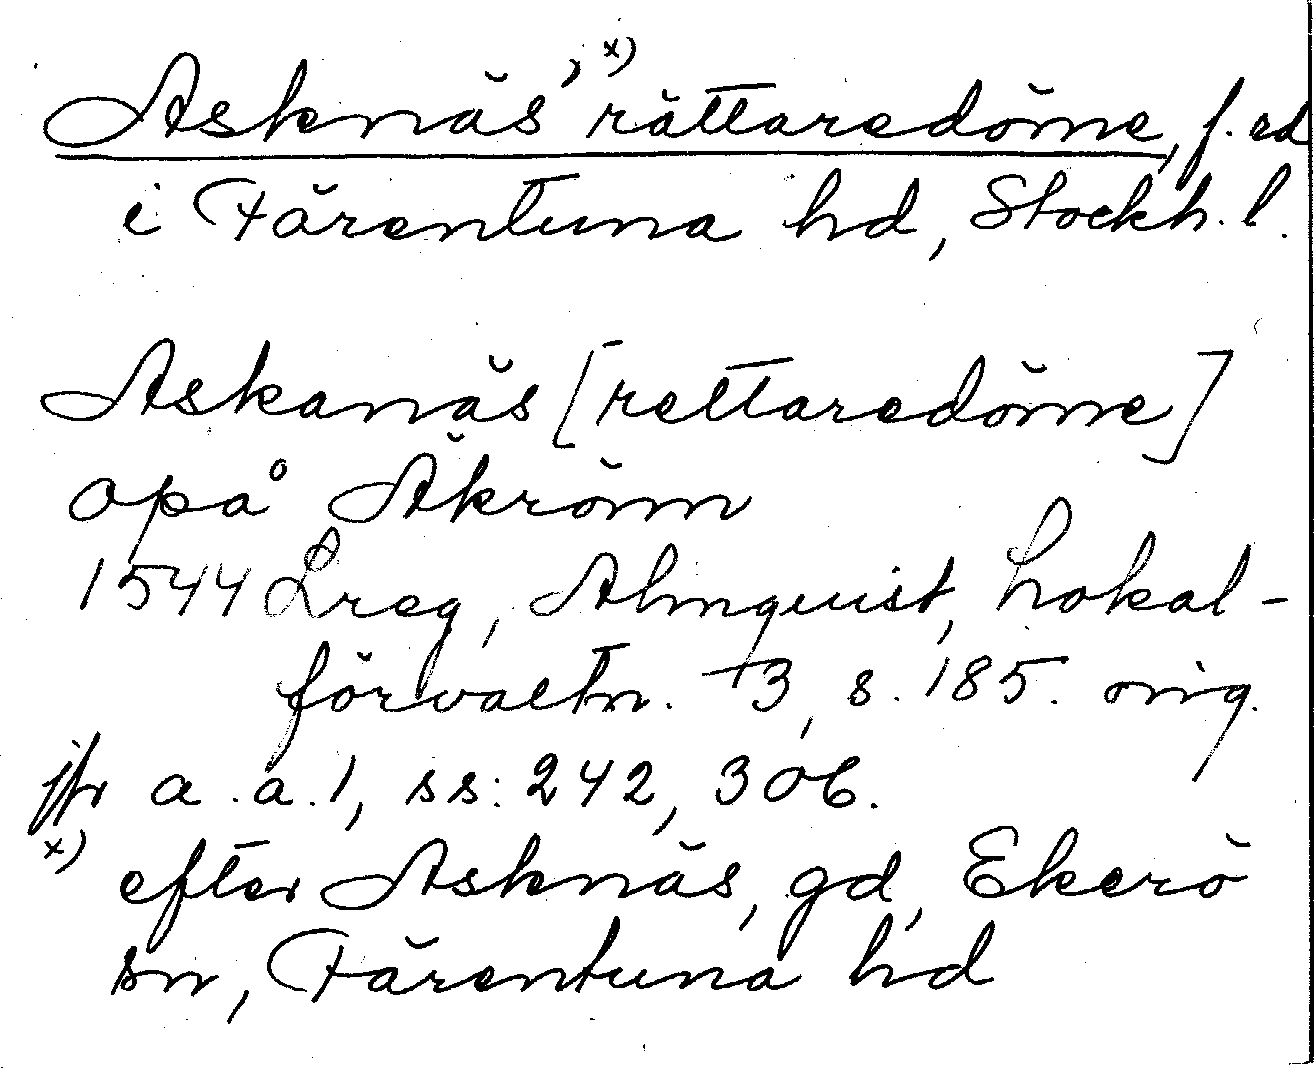 Asknäs,ˣ⁾ rättaredöme, f. ad
i Färentuna hd, Stockh. l.
Askanäs [rettaredöme]
opå Äkrönn
1544 Lreg, Almquist, Lokal-
förvaltn. 3, s. 185. orig.
jfr a.a. 1, ss: 242, 306.
x) efter Asknäs, gd, Ekerö
sn, Färentuna hd